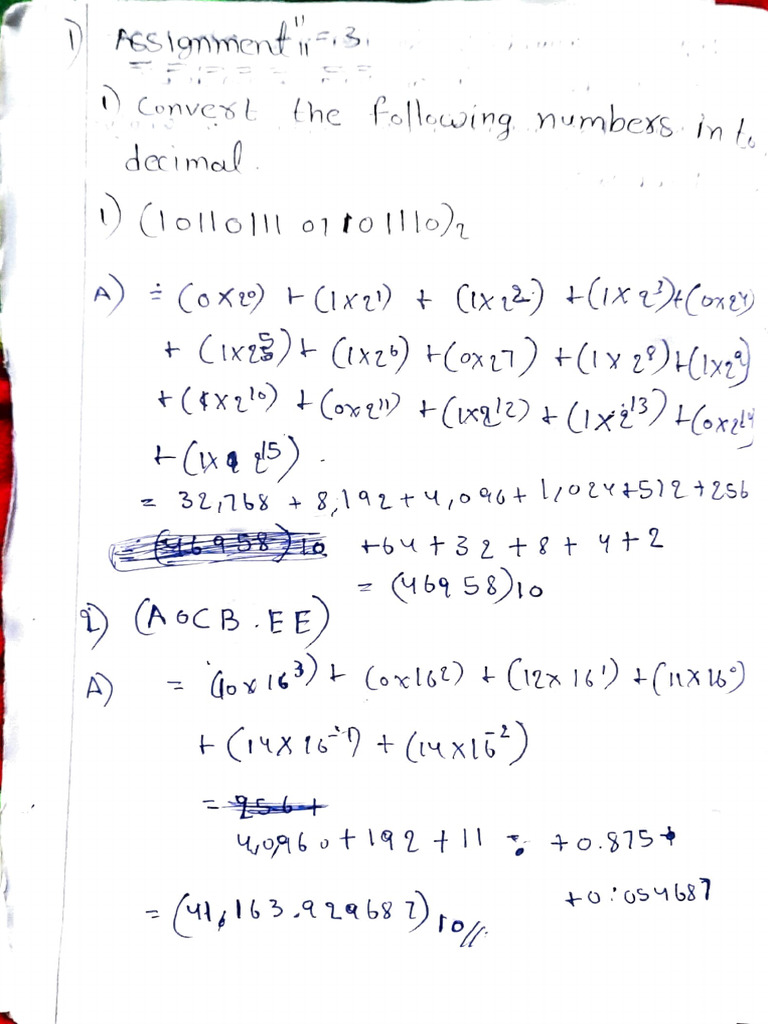 1) Assignment "=.3.
1) Convert the following numbers in to
decimal.
1) (1011011101101110)₂
A) = (0×2⁰) + (1×2¹) + (1×2²) + (1×2³)+(0×2⁴)
+ (1×2⁵) + (1×2⁶) + (0×2⁷) + (1×2⁸)+(1×2⁹)
+ (1×2¹⁰) + (0×2¹¹) + (1×2¹²) + (1×2¹³) + (0×2¹⁴
+ (1× 2¹⁵).
= 32,768 + 8,192 + 4,096 + 1,024+512+256
(46958)10 +64+32+8+4+2
= (46958)10
2) (A0CB.EE)
A) = (10×16³) + (0×16²) + (12×16¹) + (11×16⁰)
+ (14×16⁻¹) + (14×16⁻²)
= 256+
40960+192+11 +0.875+
+0.054687
= (41,163.929687)10//.